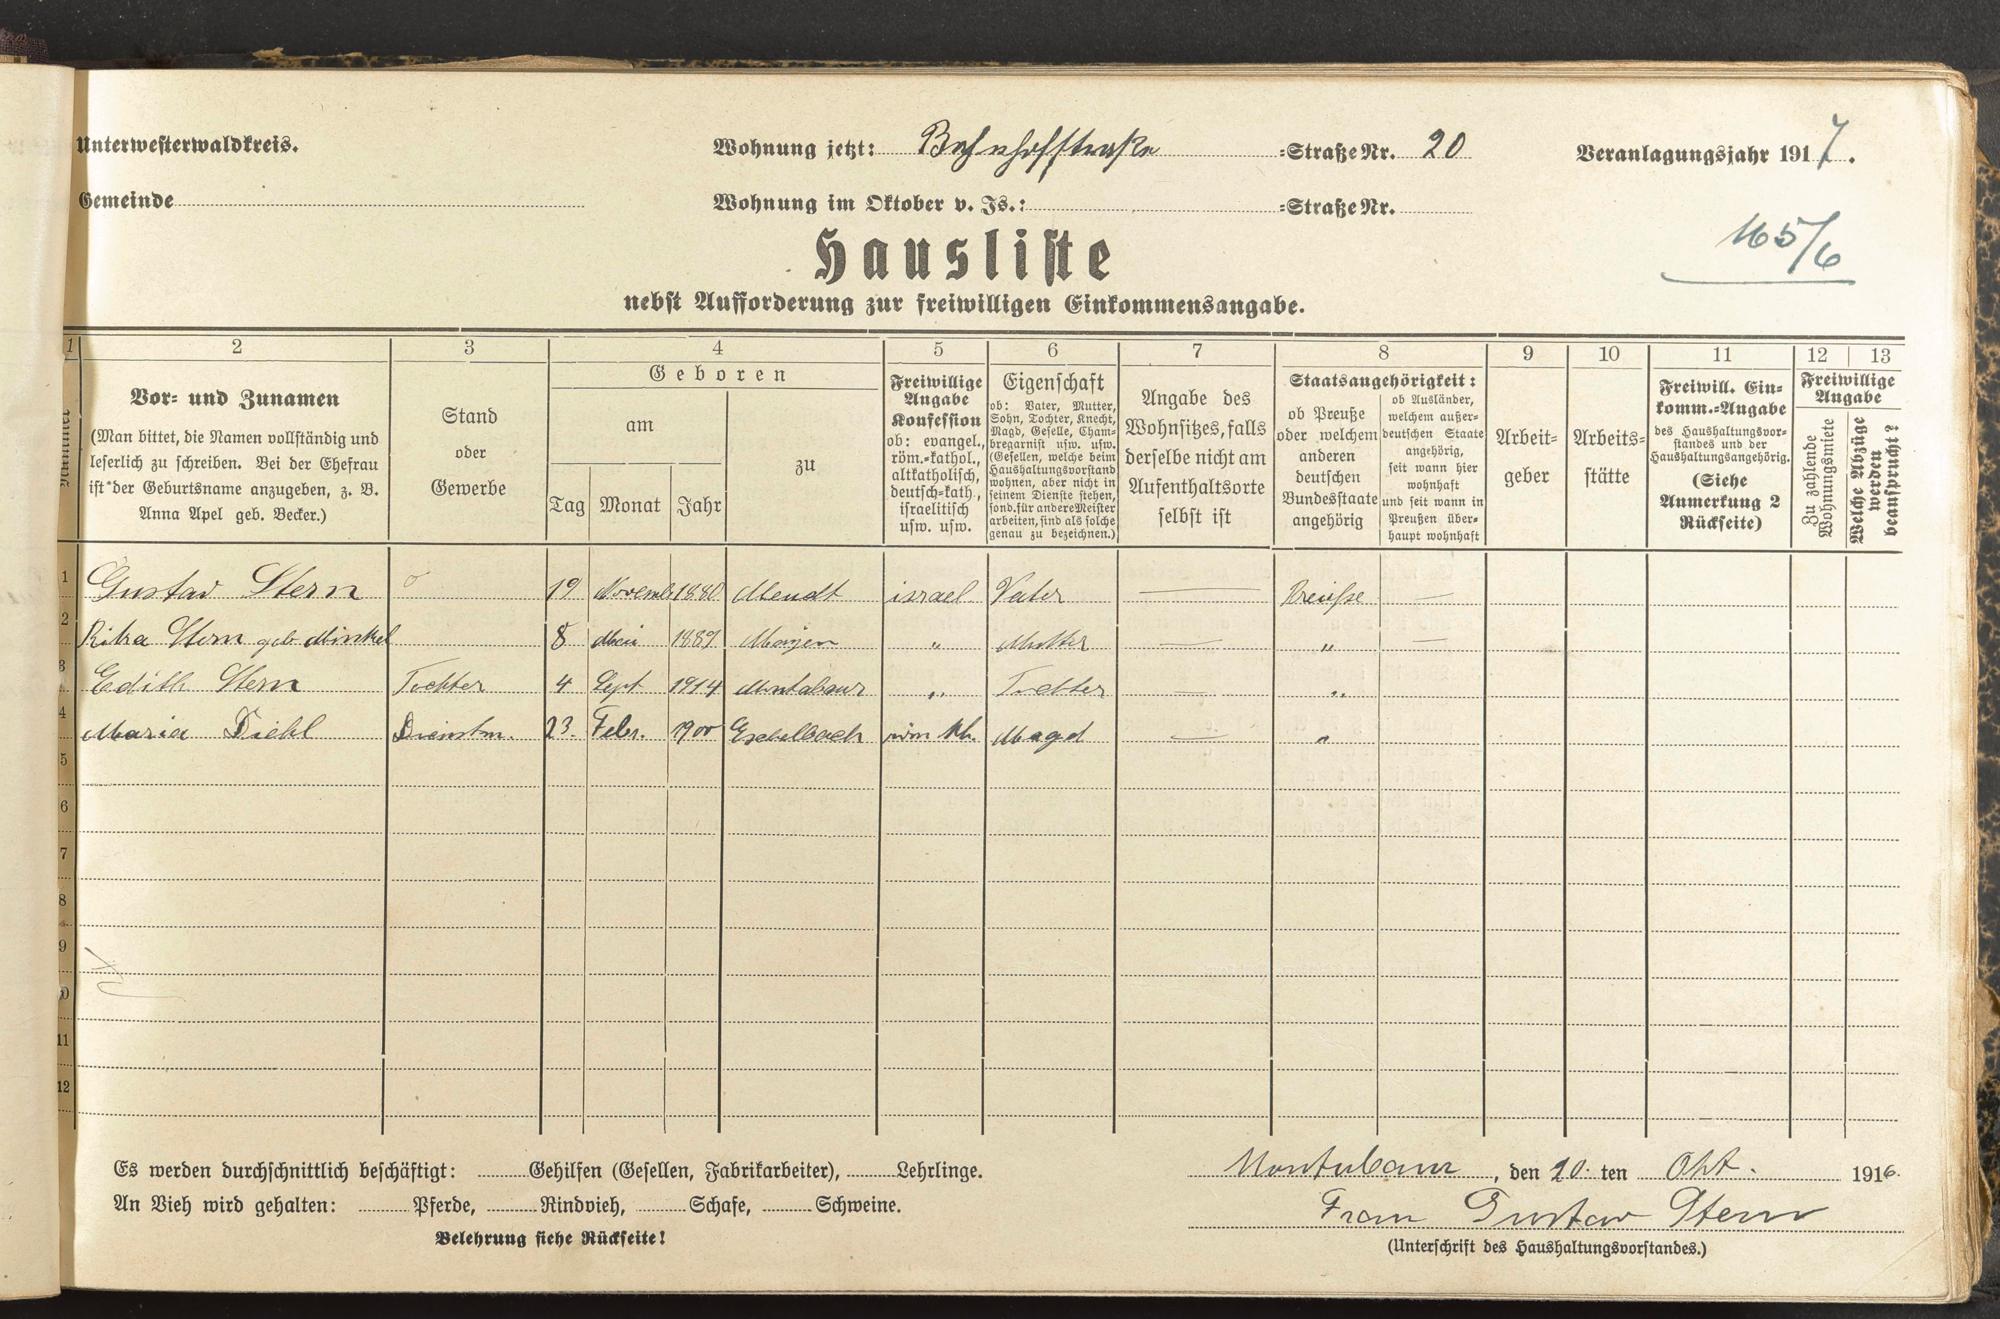 Unterwesterwaldkreis.
Wohnung jetzt: Bahnhofstraße =Straße Nr. 20
Veranlagungsjahr 1917.
Gemeinde
Wohnung im Oktober v. Js.: =Straße Nr.
165/6
Hausliste
nebst Aufforderung zur freiwilligen Einkommensangabe.
1 2 3 4 5 6 7 8 9 10 11 12 13
Nummer
Vor- und Zunamen
(Man bittet, die Namen vollständig und
leserlich zu schreiben. Bei der Ehefrau
ist der Geburtsname anzugeben, z. B.
Anna Apel geb. Becker.)
Stand
oder
Gewerbe
Geboren
am
Tag Monat Jahr
zu
Freiwillige
Angabe
Konfession
ob: evangel.,
röm.-kathol.,
altkatholisch,
deutsch-kath.,
israelitisch
usw. usw.
Eigenschaft
ob: Vater, Mutter,
Sohn, Tochter, Knecht,
Magd, Geselle, Cham-
bregarnist usw. usw.
(Gesellen, welche beim
Haushaltungsvorstand
wohnen, aber nicht in
seinem Dienste stehen,
sond. für andere Meister
arbeiten, sind als solche
genau zu bezeichnen.)
Angabe des
Wohnsitzes, falls
derselbe nicht am
Aufenthaltsorte
selbst ist
Staatsangehörigkeit:
ob Preuße
oder welchem
anderen
deutschen
Bundesstaate
angehörig
ob Ausländer,
welchem außer-
deutschen Staate
angehörig,
seit wann hier
wohnhaft
und seit wann in
Preußen über-
haupt wohnhaft
Arbeit-
geber
Arbeits-
stätte
Freiwill. Ein-
komm.-Angabe
des Haushaltungsvor-
standes und der
Haushaltungsangehörig.
(Siehe
Anmerkung 2
Rückseite)
Freiwillige
Angabe
Zu zahlende
Wohnungsmiete
Welche Abzüge
werden
beansprucht?
1 Gustav Stern 19 Novemb 1880 Meudt israel Vater Preuße
2 Rika Stern geb. Minkel 8 Mai 1889 Mayen " Mutter "
3 Edith Stern Tochter 4 Sept 1914 Montabaur " Tochter "
4 Maria Diehl Dienstm. 23. Febr. 1900 Eschelbach röm kh. Magd "
5
6
7
8
9
10
11
12
Es werden durchschnittlich beschäftigt: Gehilfen (Gesellen, Fabrikarbeiter), Lehrlinge.
Montabaur, den 20. ten Okt. 1916.
An Vieh wird gehalten: Pferde, Rindvieh, Schafe, Schweine.
Frau Gustav Stern
Belehrung siehe Rückseite!
(Unterschrift des Haushaltungsvorstandes.)